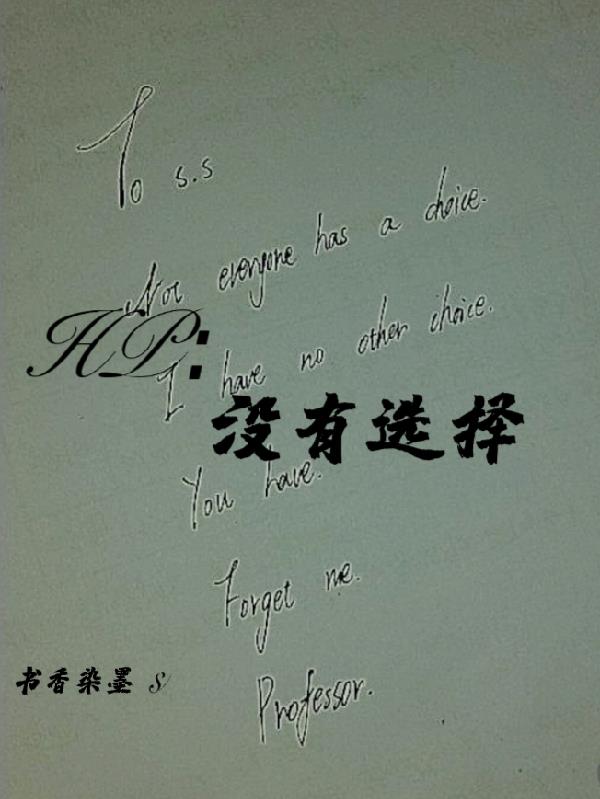 To s.s
Not everyone has a choice.
HP:
I have no other choice.
没有选择
You have.
Forget me.
书香染墨 S/
Professor.